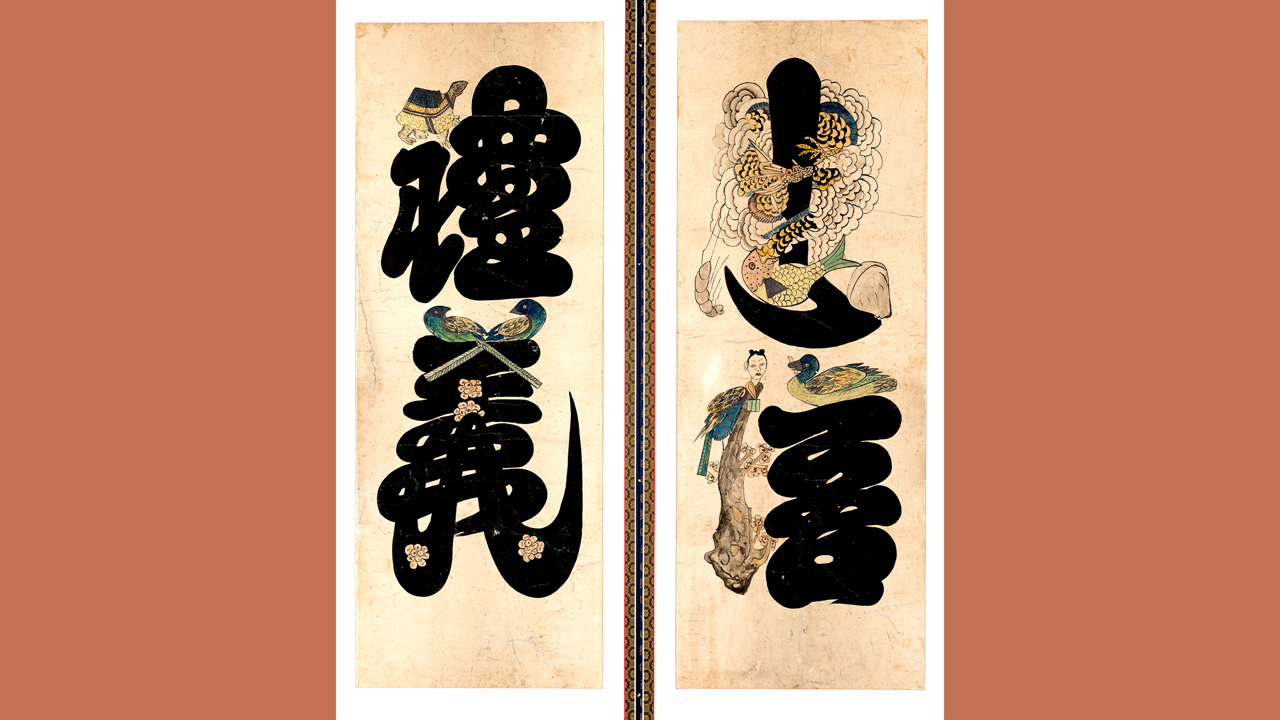 忠信
禮義